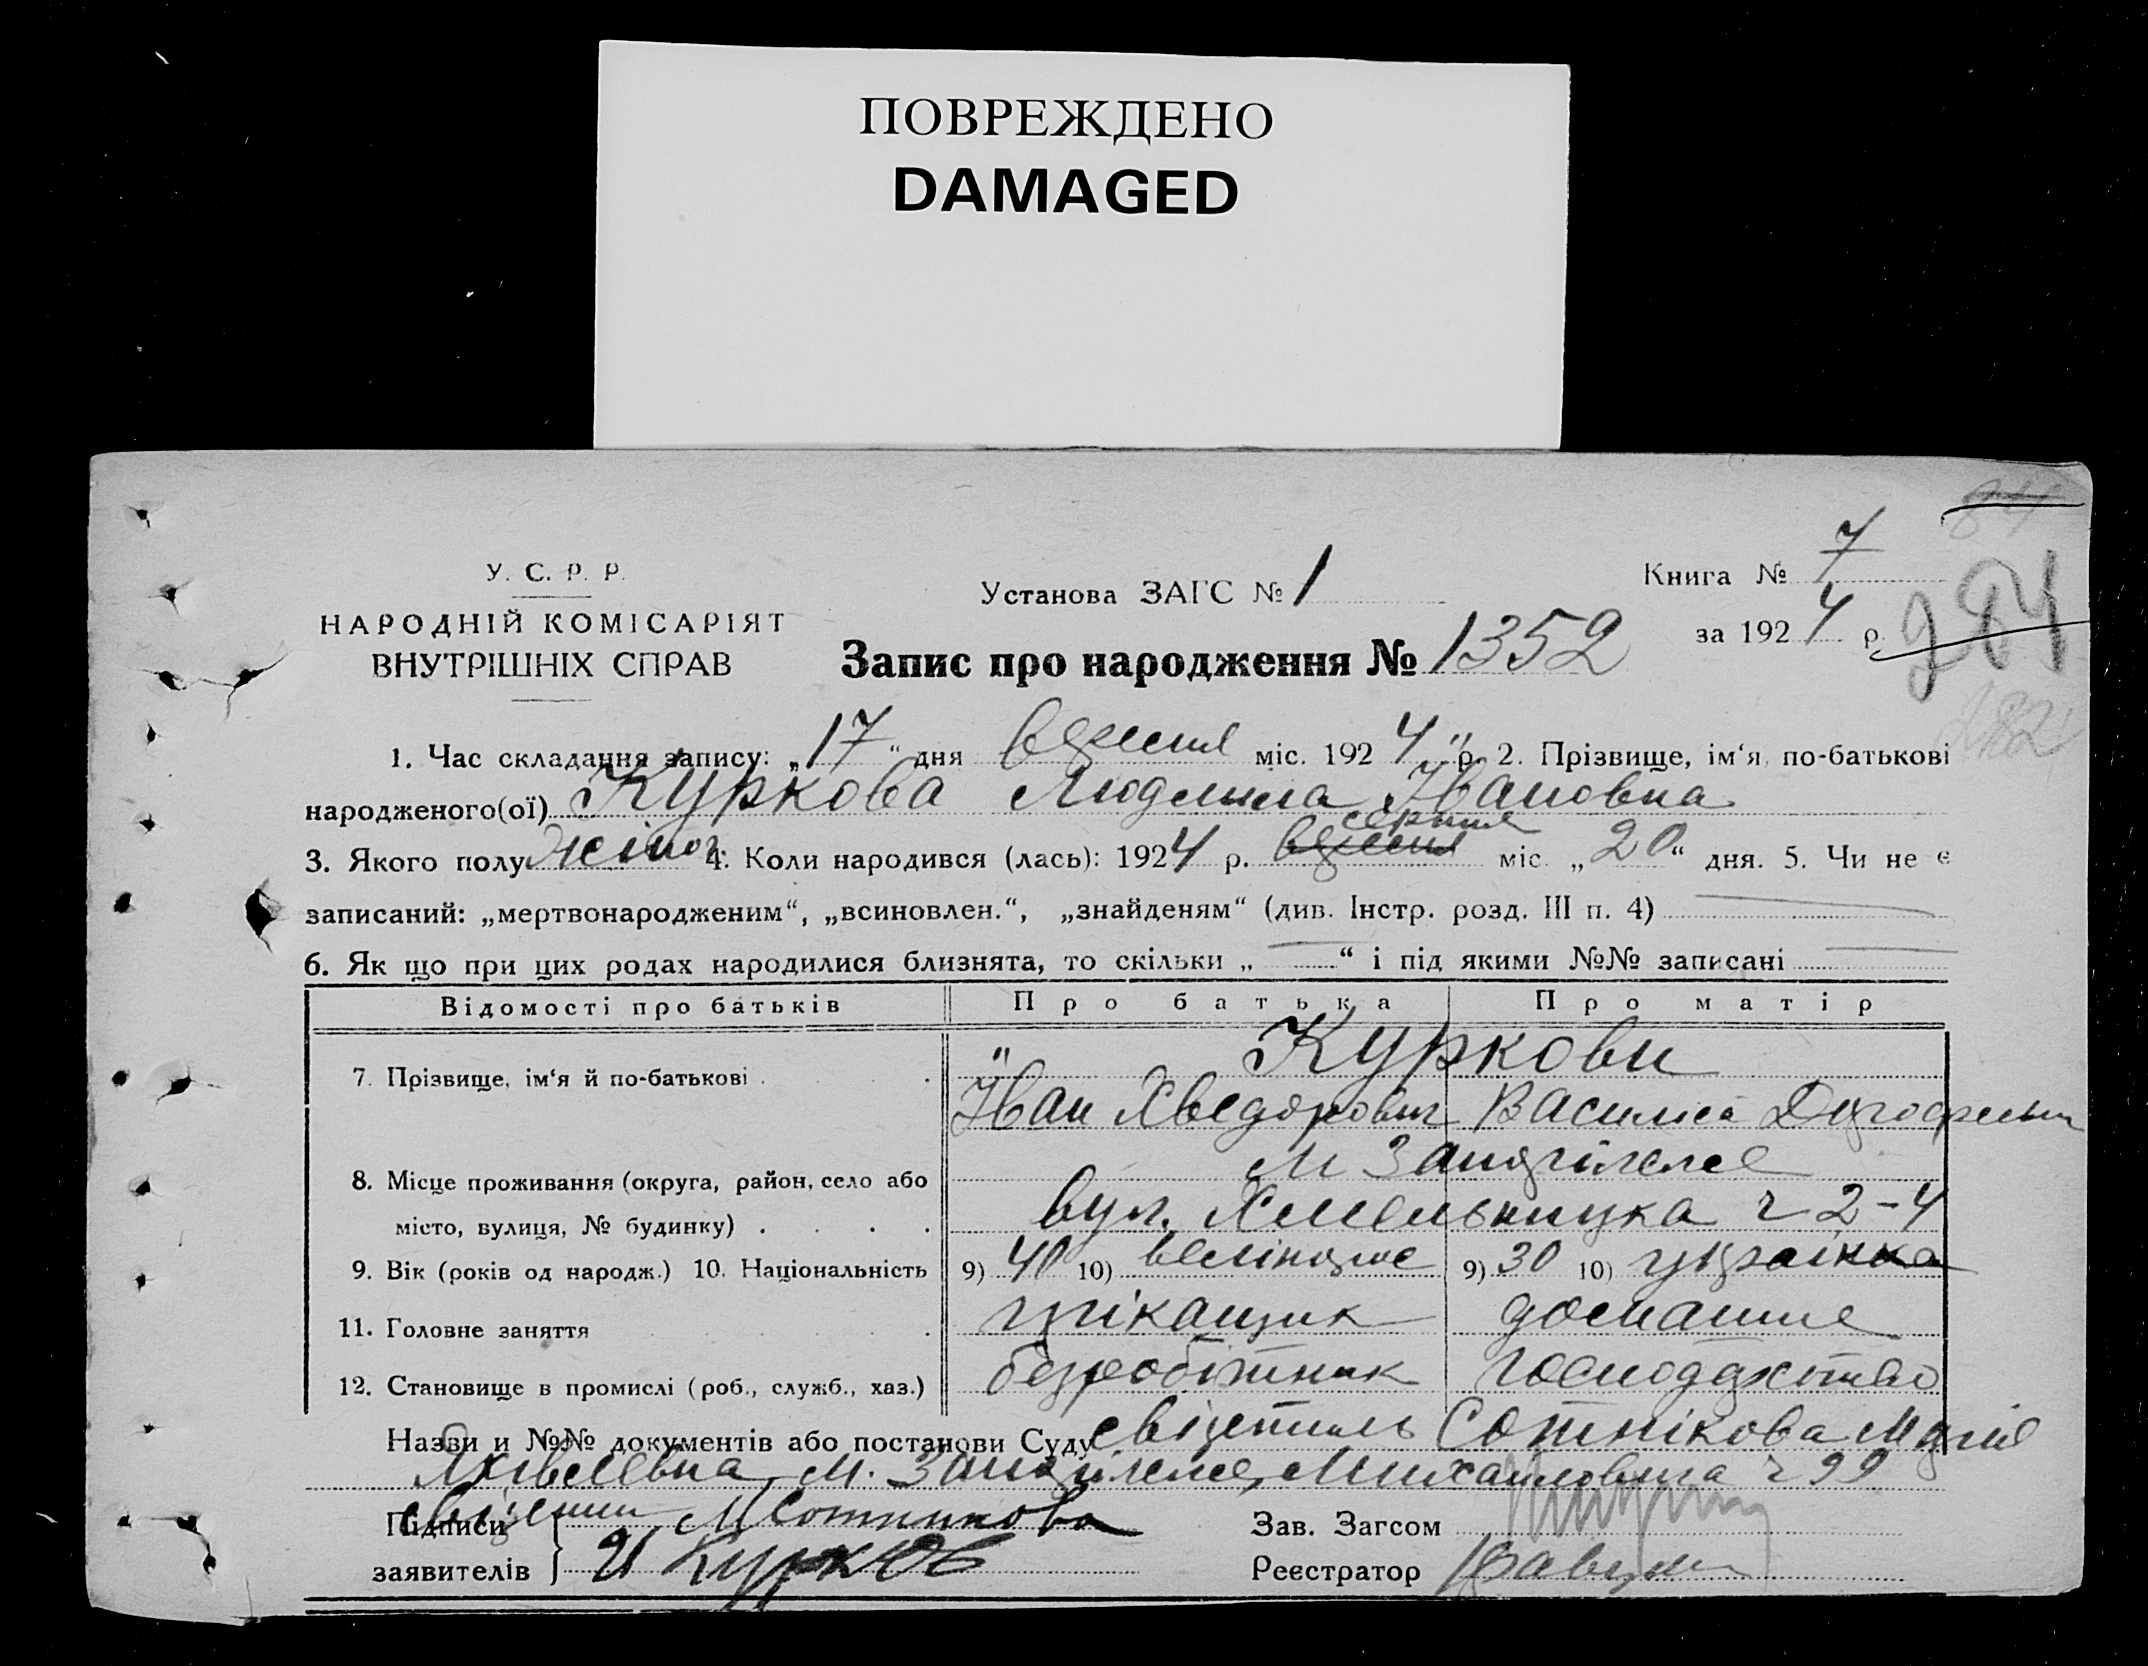 ПОВРЕЖДЕНО
DAMAGED
84
У. С. Р. Р.
НАРОДНІЙ КОМІСАРІЯТ
ВНУТРІШНІХ СПРАВ
Установа ЗАГС № 1
Книга № 7
за 1924 р.
284
282
Запис про народження № 1352
1. Час складання запису: „17“ дня вересня міс. 1924 р. 2. Прізвище, ім‘я, по-батькові
народженого(ої) Куркова Людмила Івановна
3. Якого полу жіноч. 4. Коли народився (лась): 1924 р. вересня серпня міс. „20“ дня. 5. Чи не є
записаний: „мертвонародженим“, „всиновлен.“, „знайденям“ (див. Інстр. розд. III п. 4)
6. Як що при цих родах народилися близнята, то скільки „ “ і під якими №№ записані
Відомості про батьків Про батька Про матір
7. Прізвище, ім‘я й по-батькові Куркови
Іван Хведорович Василіса
8. Місце проживання (округа, район, село або м Запоріжжє
місто, вулиця, № будинку) вул. Хмельницка ч 2-4
9. Вік (років од народж.) 10. Національність 9) 40 10) 9) 30 10) українка
11. Головне заняття прікащик домашнє
12. Становище в промислі (роб., служб., хаз.) безробітник господарство
Назви и №№ документів або постанови Суду Сотнікова Марія
Яківлевна, м. Запоріжжє, ч 99
Підписи М Сотникова Зав. Загсом
заявителів И Курков Реєстратор